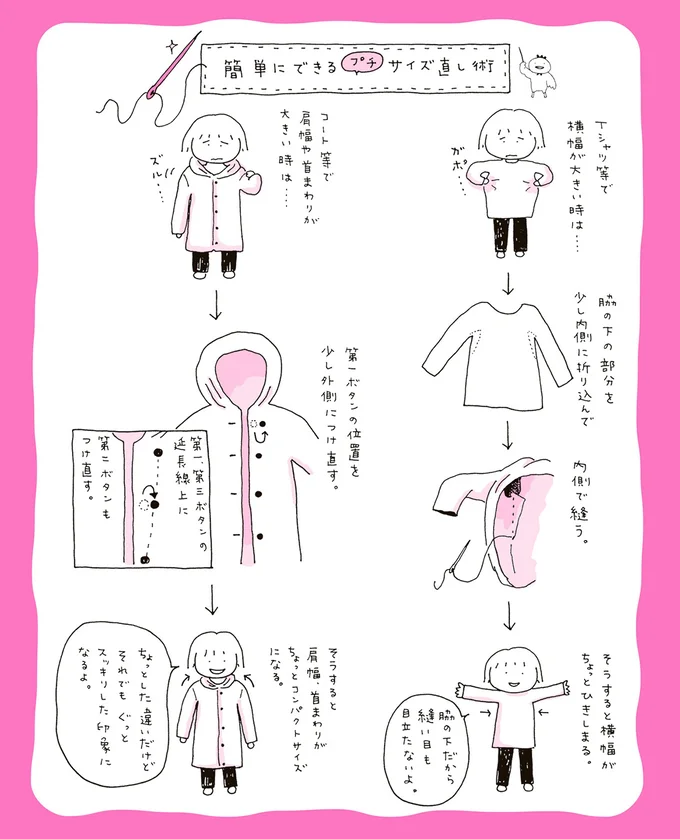 簡単にできるプチサイズ直し術
Tシャツ等で
横幅が大きい時は……
ガポ…
脇の下の部分を
少し内側に折り込んで
内側で縫う。
そうすると横幅が
ちょっとひきしまる。
脇の下だから
縫い目も
目立たないよ。
コート等で
肩幅や首まわりが
大きい時は……
ズル…
第一ボタンの位置を
少し外側につけ直す。
第一、第三ボタンの
延長線上に
第二ボタンも
つけ直す。
そうすると
肩幅、首まわりが
ちょっとコンパクトサイズ
になる。
ちょっとした違いだけど
それでもぐっと
スッキリした印象に
なるよ。